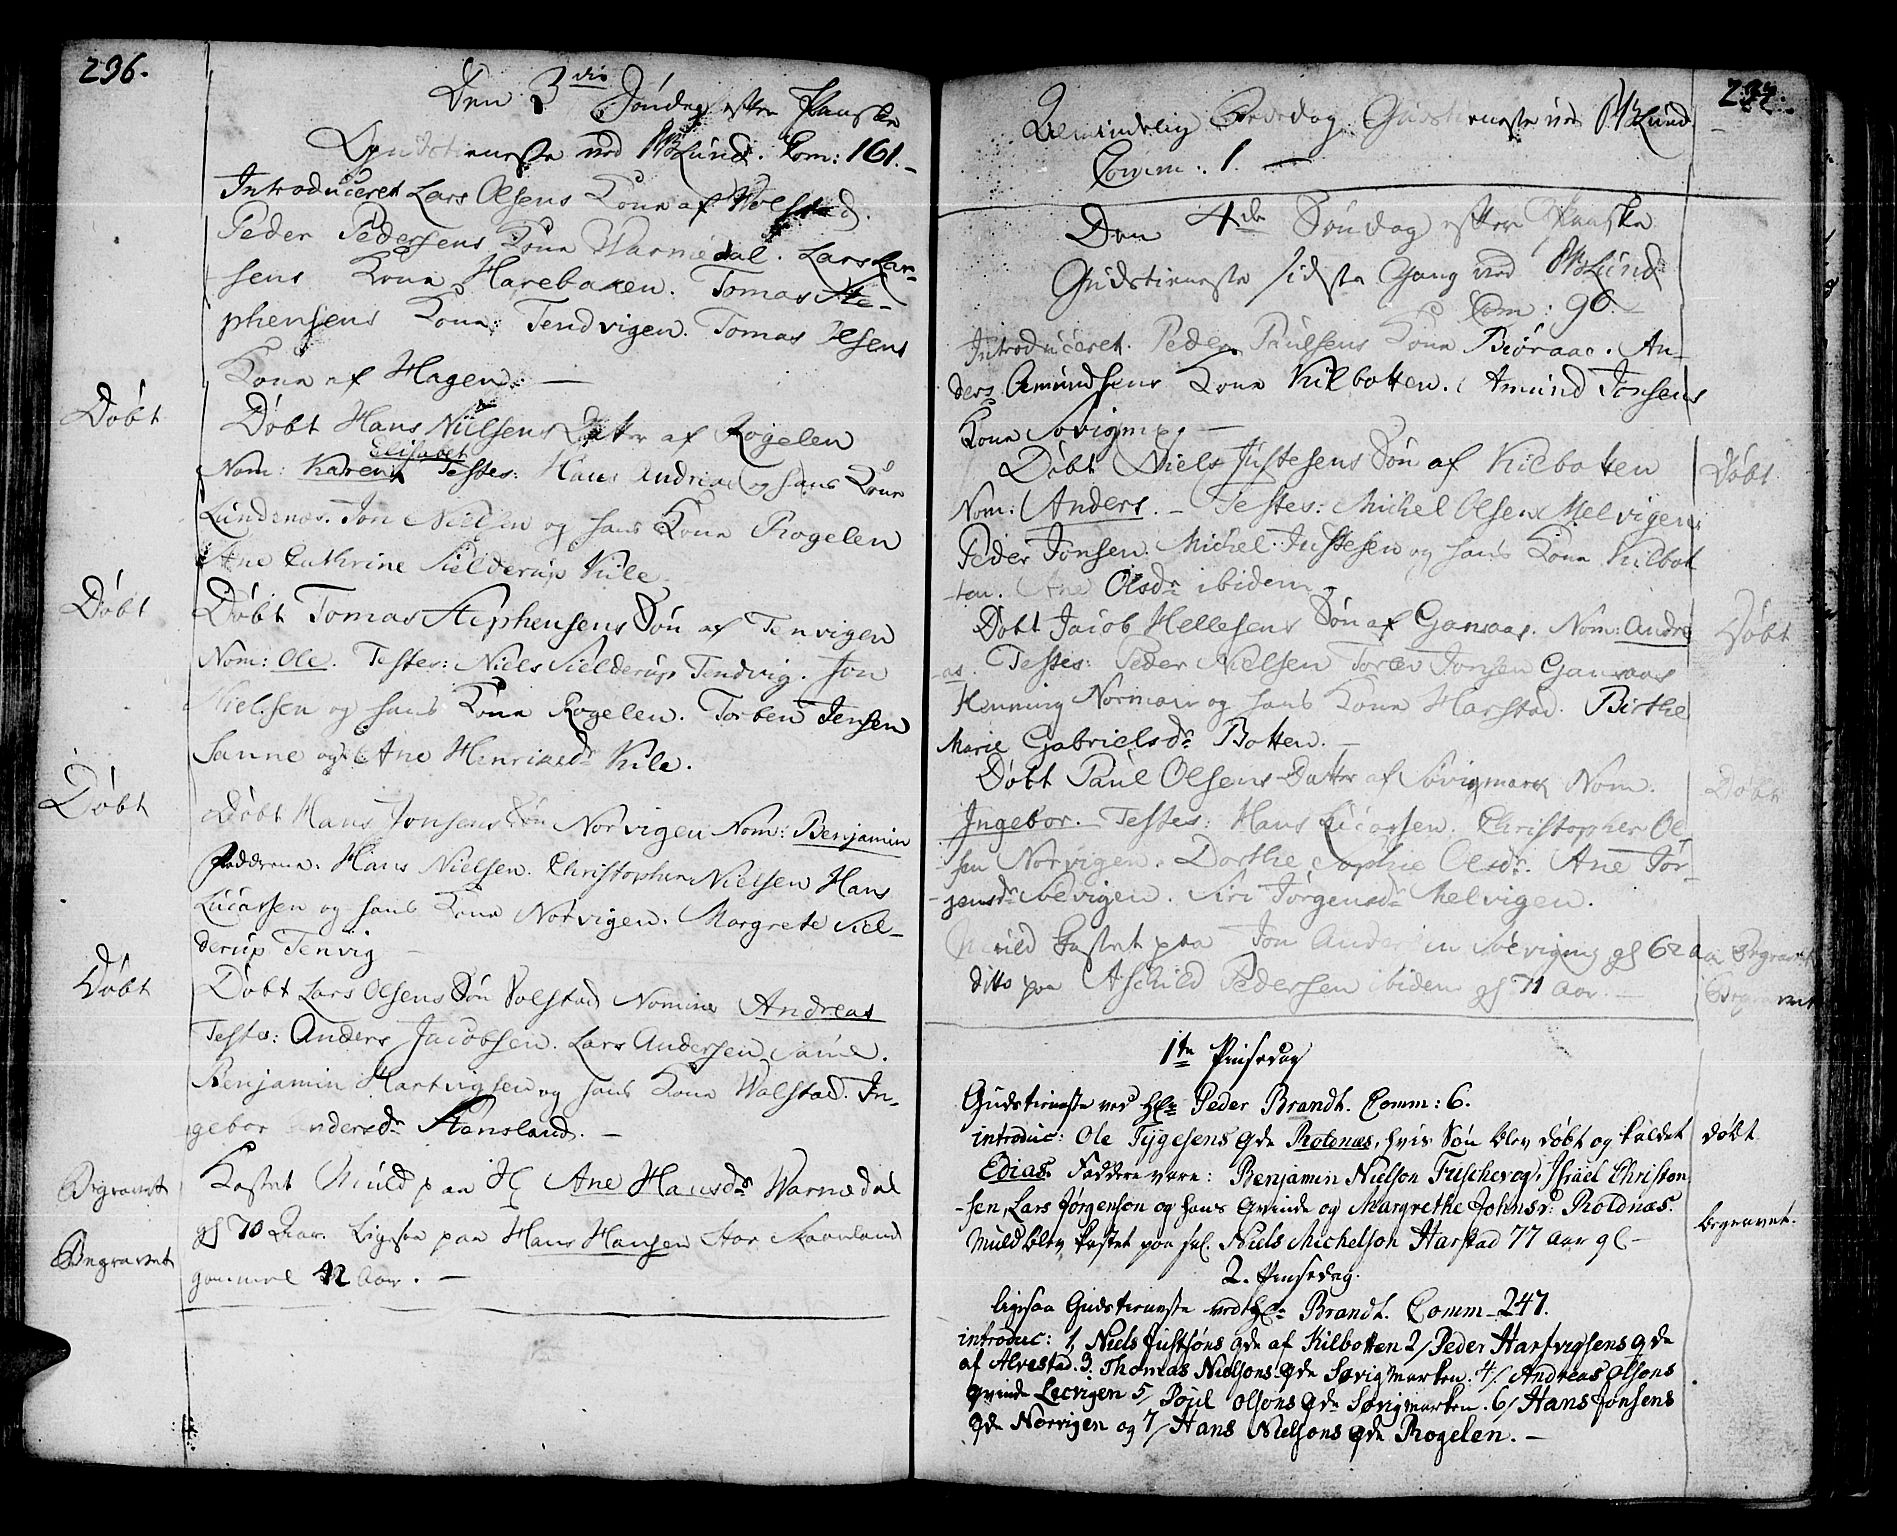 236.
Den 3die Søndag efter Paaske
Gudstieneste ved PBLund. Com: 161.
Introduceret Lars Olsens Kone af Wolstad.
Peder Pedersens Kone Warnedal. Lars Lar-
sens Kone Harebaken. Tomas Ste-
phensens Kone Tendvigen. Tomas Olsens
Kone af Hagen. —
Døbt
Døbt Hans Nielsens Datter af Rogelen
Elisabet
Nom: Karen Testes: Hans Andreas og hans Kone
Lundenæs. Jon Nielsen og hans Kone Rogelen
Ane Cathrine Sielderup Kile
Døbt
Døbt Tomas Stephensens Søn af Tenvigen
Nom: Ole. Testes: Niels Sielderup Tendvig. Jon
Nielsen og hans Kone Rogelen. Torben Jensen
Sanne og Ane Henriksdr Kile.
Døbt
Døbt Hans Jonsens Søn Norvigen Nom: Benjamin
Fadderne: Hans Nielsen. Christopher Nielsen Hans
Lucassen og hans Kone Norvigen. Margrete Siel-
derup Tenvig —
Døbt
Døbt Lars Olsens Søn Volstad Nomine Andreas
Testes: Anders Jacobsen. Lars Andersen Sanne.
Benjamin Hartvigsen og hans Kone Wolstad. In-
gebor Andersdr Stensland. —
Begravet
Kastet Muld paa Ane Hansdr Warnedal
gl 70 Aar. Ligesaa paa Hans Hansen Stor Skaanland
Begravet
gammel 42 Aar. —
237.
Almindelig Bededag Gudstieneste ved PBLund
Comm: 1. —
Den 4de Søndag efter Paaske
Gudstieneste sidste Gang ved PBLund
Com: 90.
Introduceret. Peder Paulsens Kone Biøraae. An-
ders Amundsens Kone Kilbotten. Amund Jonsens
Kone Søvigmk. —
Døbt
Døbt Niels Justesens Søn af Kilbotten
Nom: Anders. — Testes: Michel Olsen Melvigen
Peder Jonsen. Michel Justesen og hans Kone Kilbot
-ten. Ane Olsdr ibidem
Døbt
Døbt Jacob Hellesens Søn af Gansaas. Nom: Andre
-as. Testes: Peder Nielsen Torer Jonsen Gansaas
Henning Normann og hans Kone Harstad. Birthe
Marie Gabrielsdr Botten. —
Døbt
Døbt Paul Olsens Datter af Søvigmark Nom.
Ingebor. Testes: Hans Lucassen. Christopher Ol-
sen Norvigen. Dorthe Sophie Olsdr. Ane Jør-
-gensdr Søevigen. Siri Jørgensdr Melvigen.
Muld kastet paa Jon Andersen Søevigmk gl 62 aar
Begravet
ditto paa Aschild Pedersen ibidem gl 71 Aar. —
Begravet
1te Pinsedag
Gudstieneste ved Hr Peder Brandt. Comm: 6.
introduc: Ole Tygesens Qde Rotenæs, hvis Søn blev døbt og kaldet
døbt
Edias. Faddere vare: Benjamin Nielson Fuscherog, Israel Christen
-sen, Lars Jørgenson og hans Qvinde og Margrethe Johnsd: Roldnæs.
Muld blev kastet paa sal. Niels Michelson Harstad 77 aar gl —
begravet.
2. Pinsedag.
ligesaa Gudstieneste ved Hr Brandt. Comm — 247.
introduc: 1, Niels Justsøns Qde af Kilbotten 2/ Peder Hartvigsens Qde
af Alvestad. 3. Thomas Nielsons Qde Søvigmarken. 4/ Andreas Olsons
Qvinde Lecvigen 5/ Poul Olsons Qde Søvigmarken. 6/ Hans Jonsens
Qde Norvigen og 7/ Hans Nielsons Qde Rogelen. —